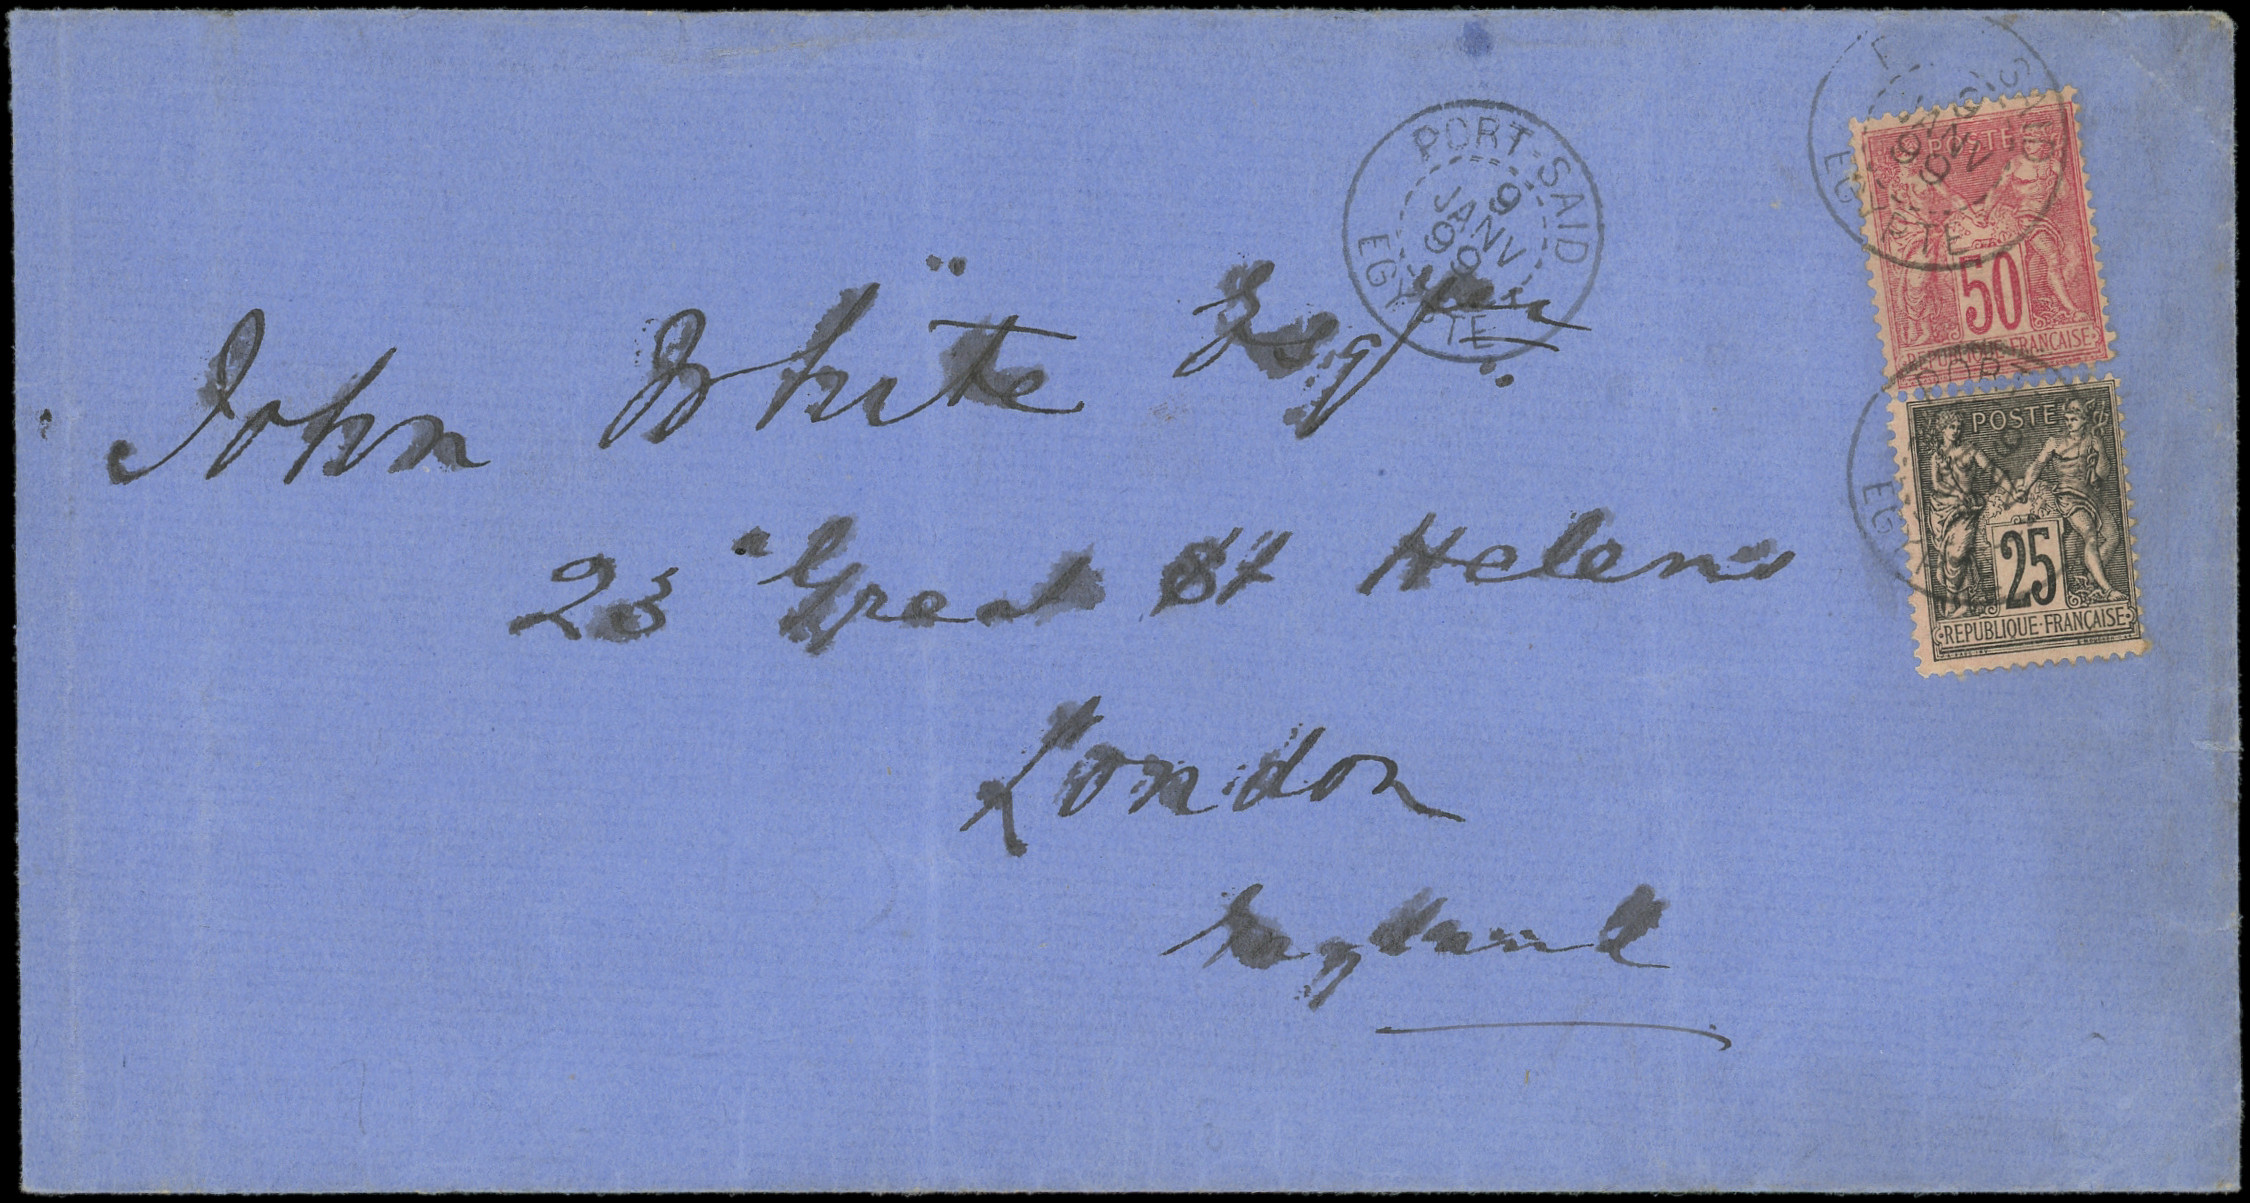 PORT-SAID
9
JANV
99
EGYPTE
SAID
9
JANV
99
EGYPTE
POSTE
50
REPUBLIQUE FRANCAISE
POSTE
25
REPUBLIQUE FRANÇAISE
John White Esqre
23 Great St Helens
London
England